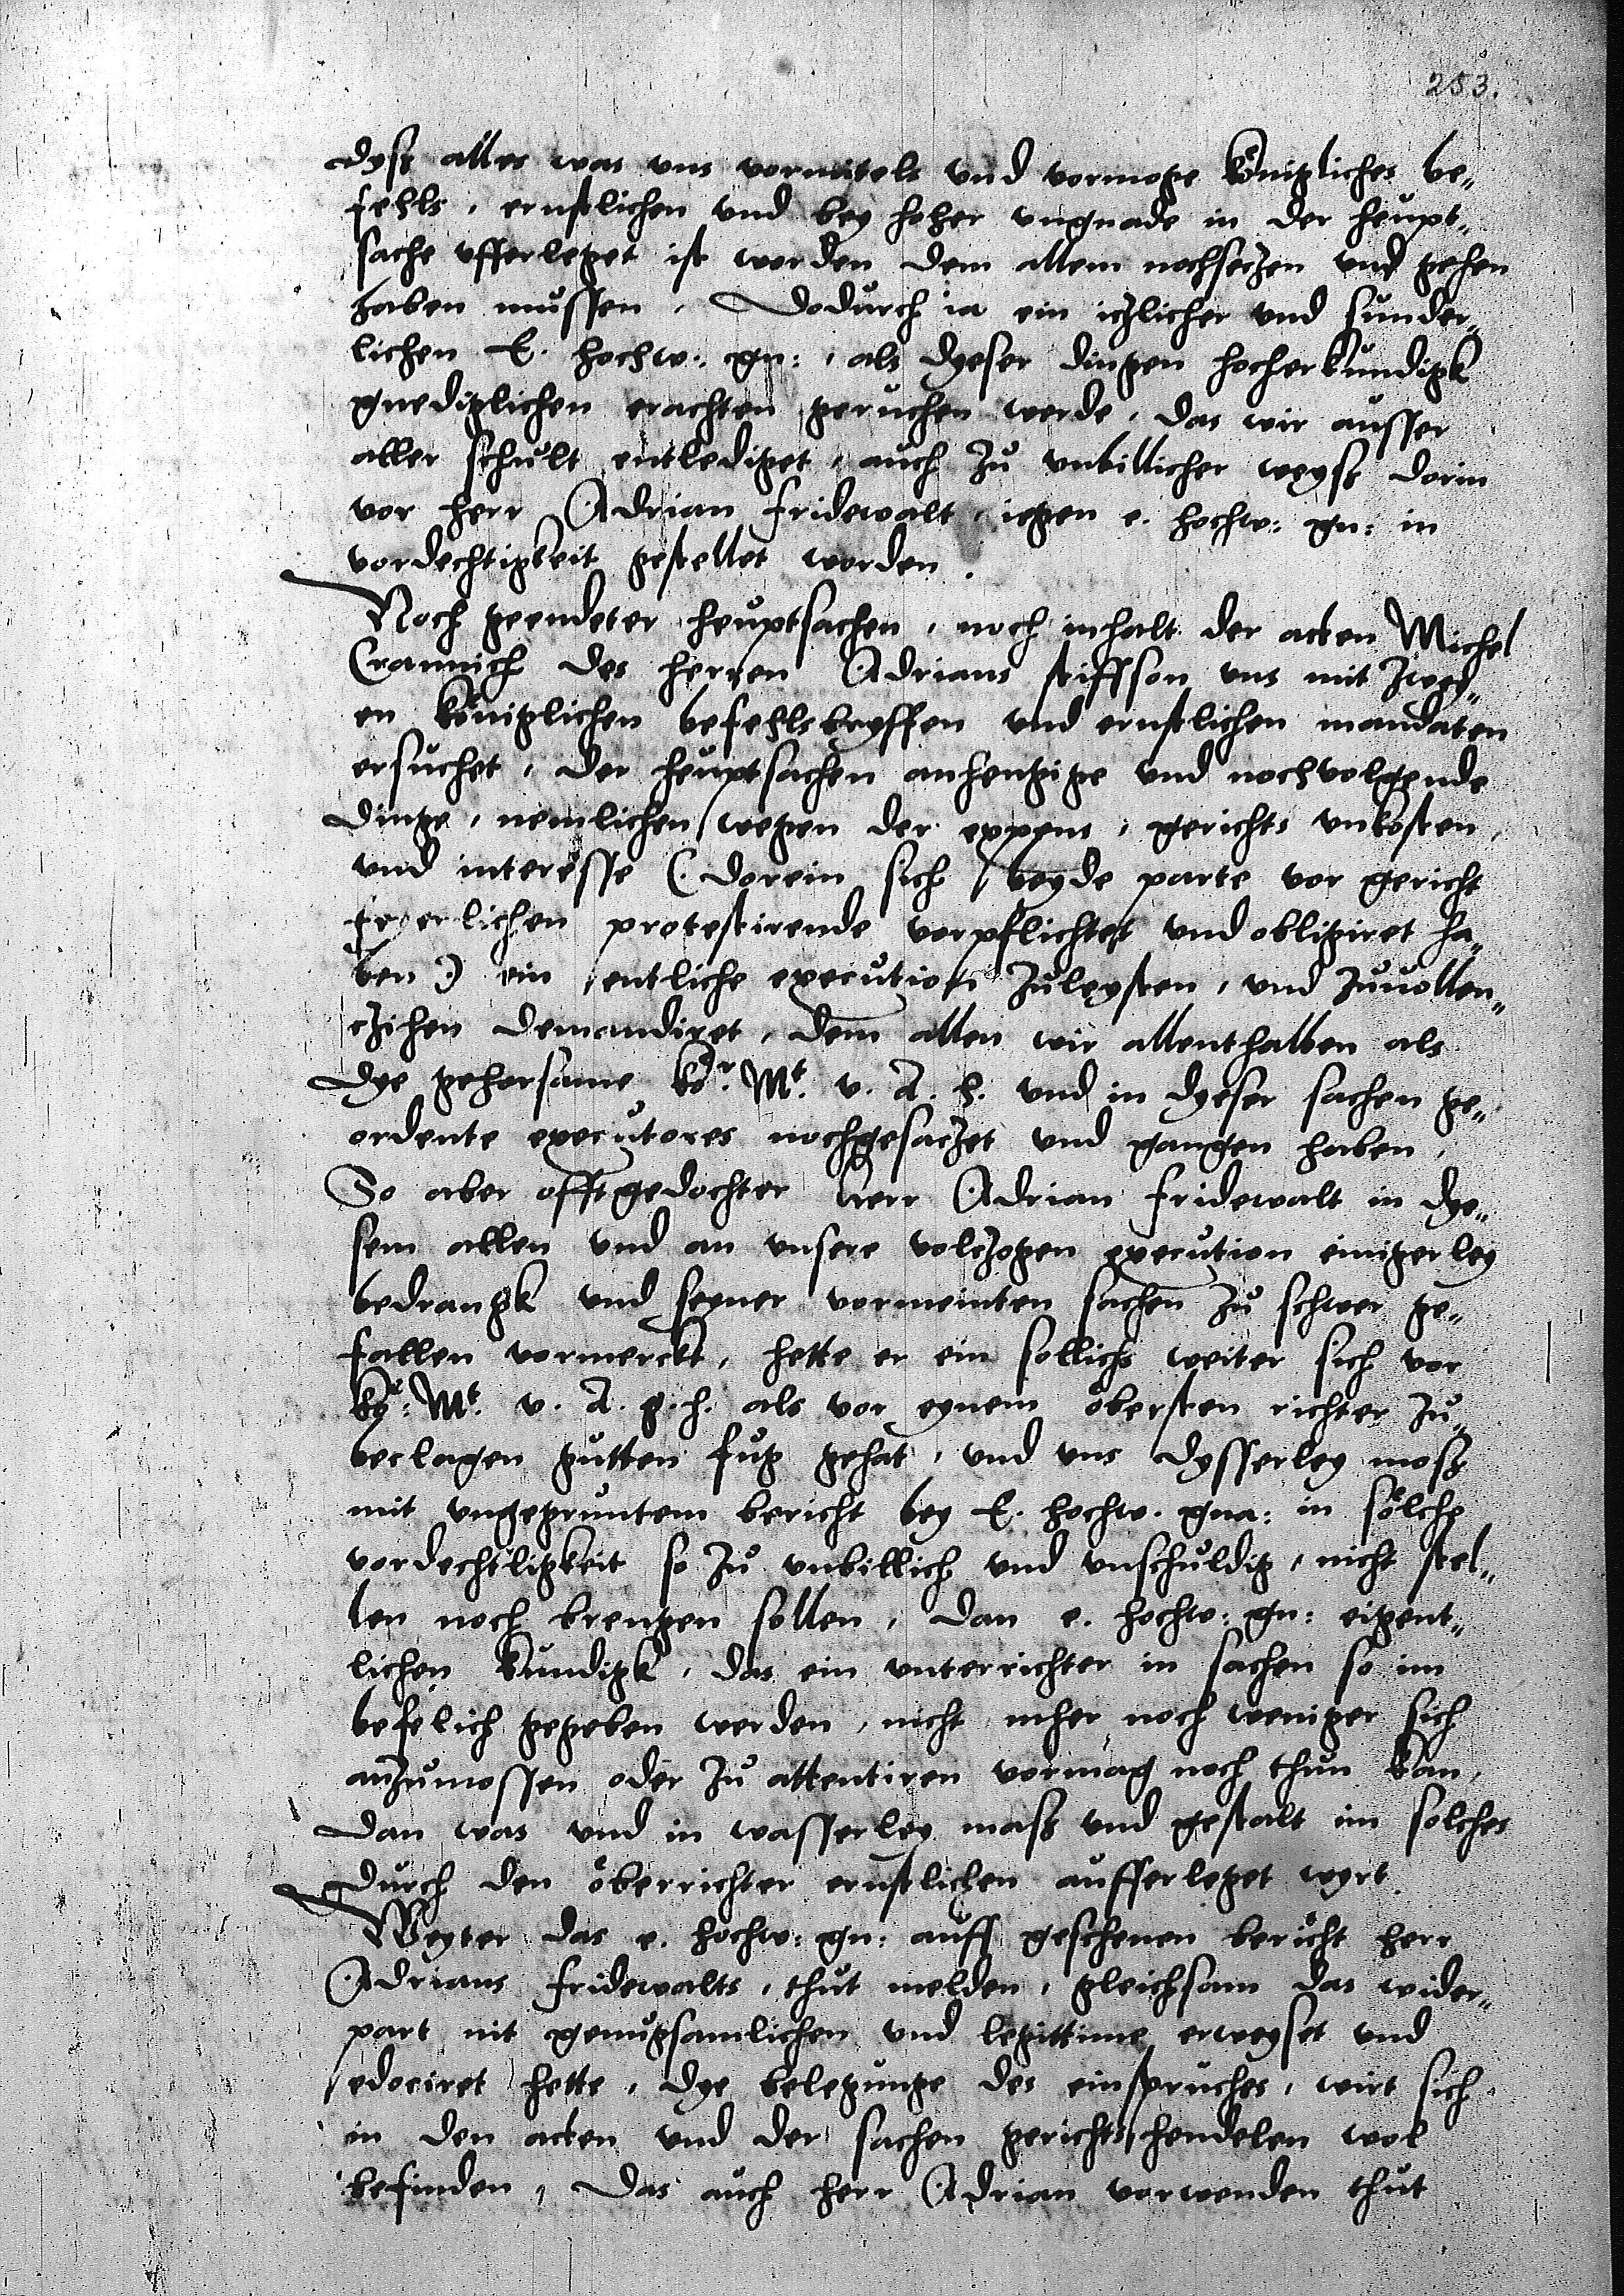 253.
dyß alles was uns vormitels und vormoge königliches be„
fehls, ernstlichen und bey hoher ungnade in der heupt„
sache ufferleget ist worden dem allem nochseczen und gehen
haben mussen, Dodurch ia ein iczlicher und sunder„
lichen E. hochw. gn:, als dyeser dingen hocherkundigk
gnediglichen erachten geruchen werde, das wir ausser
aller schult entlediget, auch zu unbillicher weyß dorin
vor herr Adrian fridewalt, iegen e. hochw: gn: in
vordechtigkeit gestellet worden.
Noch geendeter heuptsachen, noch inhalt der acten Michel
Crannich des herren Adrians stiffson uns mit zwey„
en königlichen befehlsbryffen und ernstlichen mandaten
ersuchet, der heuptsachen anhengige und nochvolgende
dinge, nemlichen wegen der expens, gerichts unkosten,
und interesse (: dorein sich beyde parte vor gericht
feyerlichen protestirende vorpflichtet und obligiret ha„
ben :) ein entliche execution zuleysten, und zuvollen„
czihen demandiret, dem allen wir allenthalben als
dye gehorsame kör. Mt. v. A. h. und in dyeser sachen ge„
ordente executores nochgesaczet und gangen haben,
So aber offtgedochter herr Adrian fridewalt in dye„
sem allen und an unsere volczogen execution einigerley
bedrangk und seyner vormeinten sachen zu schwer ge„
fallen vormerckt, hette er ein sollichs weiter sich vor
kör: Mt. v. A. g. h. als vor eynem öbersten richter zu„
beclagen gutten fug gehat, und uns dysserley moß
mit ungegruntem bericht bey E. hochw. gna: in sölche
vordechtligkeit so zu unbillich und unschuldig, nicht stel„
len noch brengen sollen, dan e. hochw: gn: eigent„
lichen kundigk, das ein unterrichter in sachen so im
befelich gegeben werden, nicht mher noch weniger sich
anzumossen oder zu attentiren vormag noch thun kan,
dan was und in wasserley maß und gestalt im solches
durch den öberrichter ernstlichen aufferleget wyrt.
Weyter das e. hochw: gn: auff geschenen bericht herr
Adrians fridewalts, thut melden, gleichsam das wider„
part nit genugsamlichen und legittime erweyset und
edociret hette, dye belegunge des einspruches, wirt sich
in den acten und der sachen gerichtshendelen wol
befinden, Das auch herr Adrian vorwenden thut